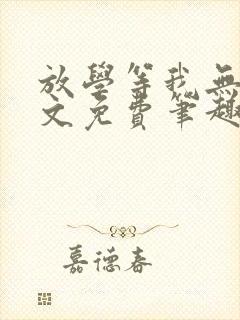 放學等我無
文免費筆趣
嘉德春